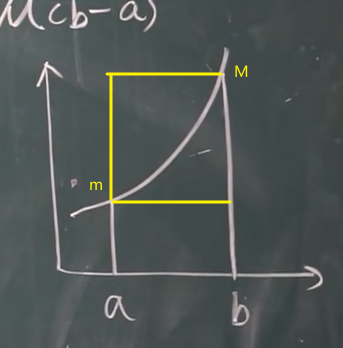 M(b-a)
M
m
a
b